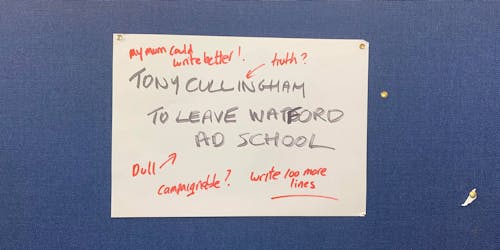 my mum could
write better!
truth?
TONY CULLINGHAM
TO LEAVE WATFORD
AD SCHOOL
Dull
campaignable?
write 100 more
lines